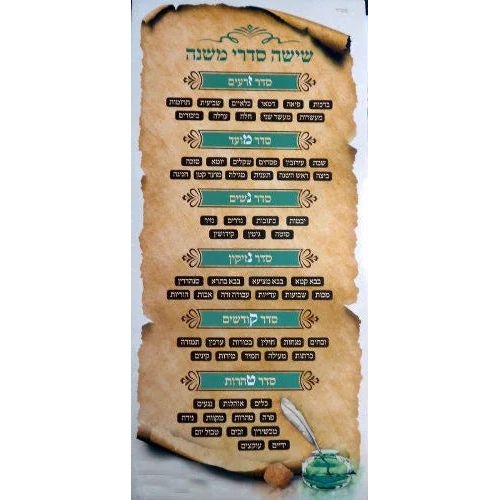 שישה סדרי משנה
סדר זרעים
ברכות פיאה דמאי כלאיים שביעית תרומות
מעשרות מעשר שני חלה ערלה ביכורים
סדר מועד
שבת עירובין פסחים שקלים יומא סוכה
ביצה ראש השנה תענית מגילה מועד קטן חגיגה
סדר נשים
יבמות כתובות נדרים נזיר
סוטה גיטין קידושין
סדר נזיקין
בבא קמא בבא מציעא בבא בתרא סנהדרין
מכות שבועות עדייות עבודה זרה אבות הוריות
סדר קודשים
זבחים מנחות חולין בכורות ערכין תמורה
כריתות מעילה תמיד מידות קינים
סדר טהרות
כלים אוהלות נגעים
פרה טהרות מקוות נידה
מכשירין זבים טבול יום
ידיים עוקצים